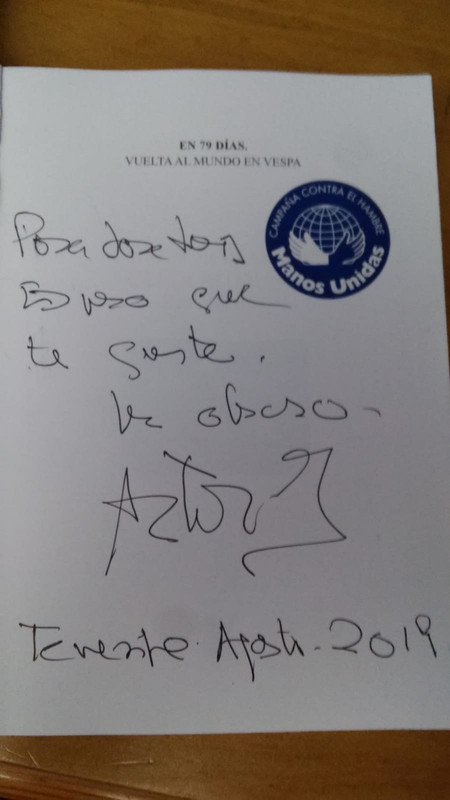 EN 79 DÍAS.
VUELTA AL MUNDO EN VESPA
CAMPAÑA CONTRA EL HAMBRE
Manos Unidas
Para Jose Luis
Espero que
te guste.
Un abrazo.
Tenerife. Agosto. 2019